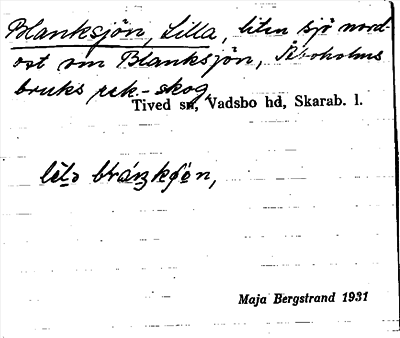 Blanksjön, Lilla, liten sjö nord-
ost om Blanksjön, Aboholms
bruks rek-skog
Tived sn, Vadsbo hd, Skarab. l.
Maja Bergstrand 1931